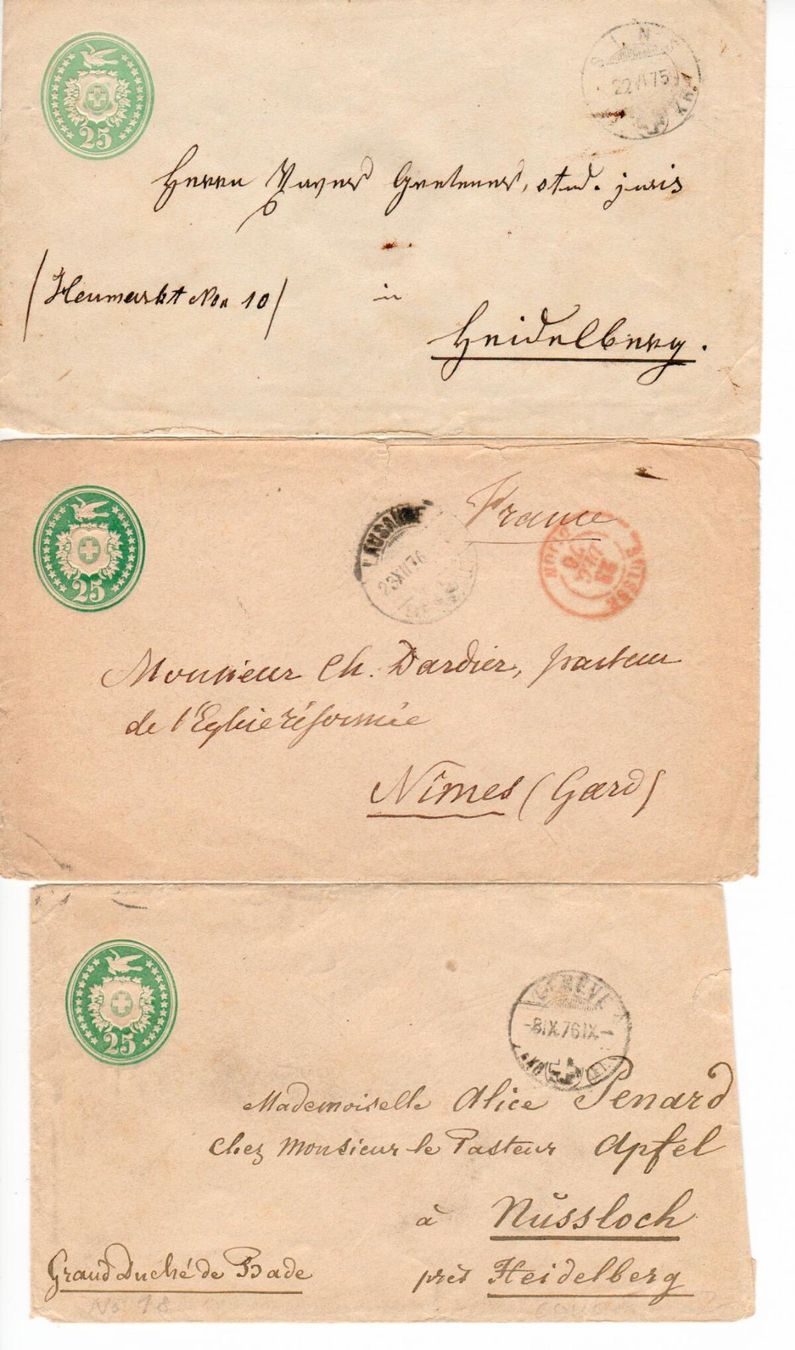 25
22 VI 75
Herrn Xaver Gretener, stud. juris
(Heumarkt Nro 10)
in
Heidelberg.
25
LAUSANNE
23 XII 76
France
SUISSE
23
DEC
76
Monsieur Ch. Dardier, pasteur
de l'Eglise réformée
Nîmes (Gard)
25
GENÈVE
-8 IX. 76 IX-
Mademoiselle Alice Penard
chez Monsieur le Pasteur Apfel
à Nüssloch
Grand Duché de Bade
près Heidelberg
No 18